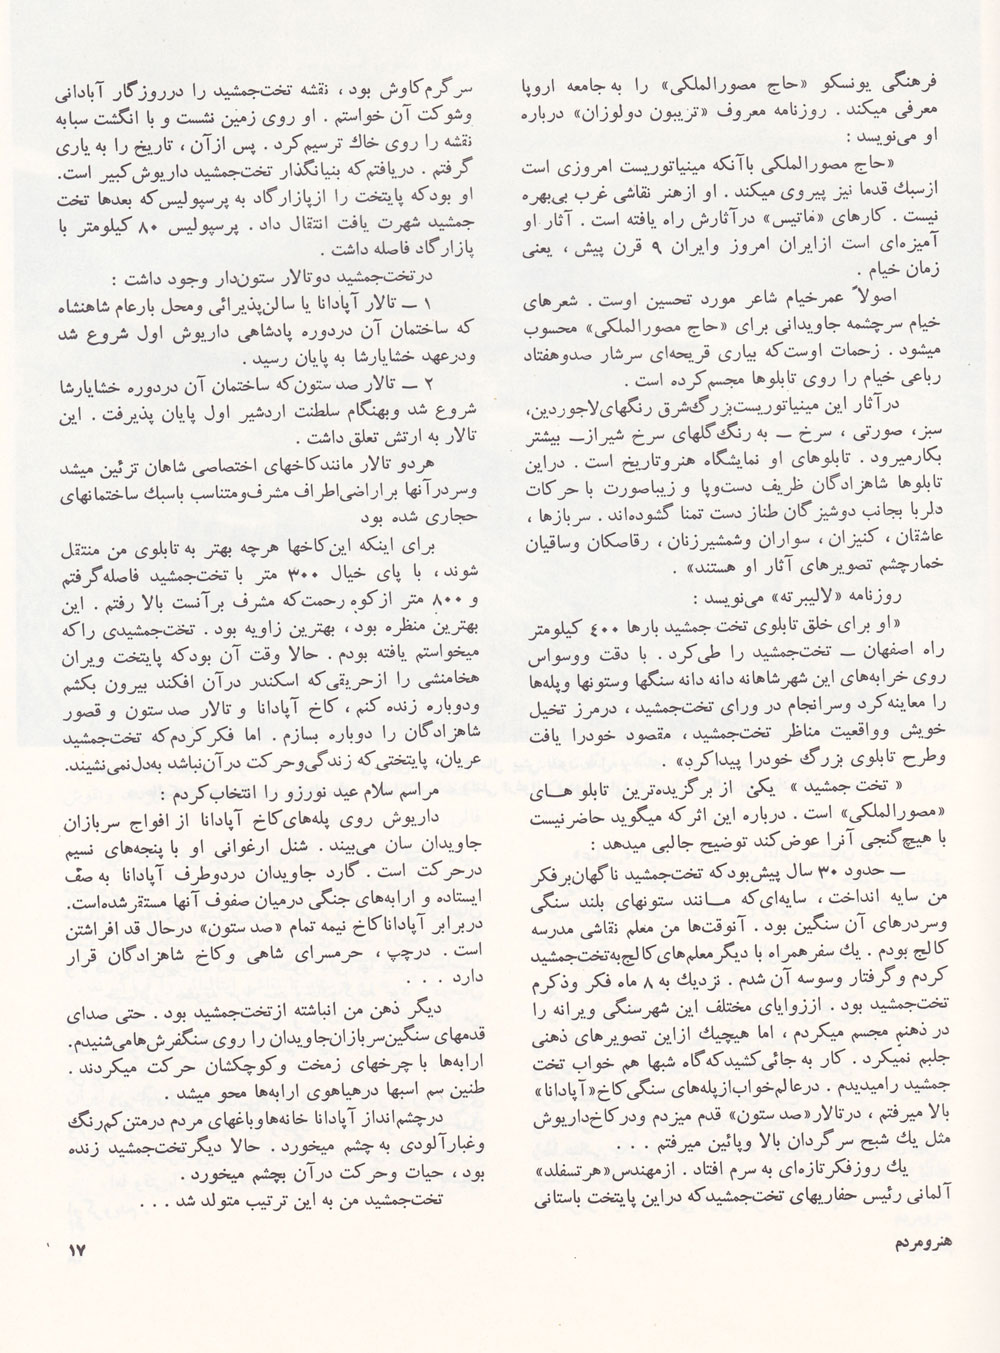 فرهنگی یونسکو «حاج مصورالملکی» را به جامعه اروپا
معرفی میکند . روزنامه معروف «تریبون دولوزان» درباره
او می‌نویسد :
«حاج مصورالملکی باآنکه مینیاتوریست امروزی است
ازسبك قدما نیز پیروی میکند . او ازهنر نقاشی غرب بی‌بهره
نیست . کارهای «ماتیس» درآثارش راه یافته است . آثار او
آمیزه‌ای است ازایران امروز وایران ۹ قرن پیش ، یعنی
زمان خیام .
اصولاً عمرخیام شاعر مورد تحسین اوست . شعرهای
خیام سرچشمه جاویدانی برای «حاج مصورالملکی» محسوب
میشود . زحمات اوست‌که بیاری قریحه‌ای سرشار صدوهفتاد
رباعی خیام را روی تابلوها مجسم‌کرده است .
درآثار این مینیاتوریست‌بزرگ‌شرق رنگهای‌لاجوردین،
سبز، صورتی ، سرخ ــ به رنگ‌گلهای سرخ شیراز ــ بیشتر
بکارمیرود . تابلوهای او نمایشگاه هنروتاریخ است . دراین
تابلوها شاهزادگان ظریف دست‌وپا و زیباصورت با حرکات
دلربا بجانب دوشیزگان طناز دست تمنا گشوده‌اند . سربازها ،
عاشقان ، کنیزان ، سواران وشمشیرزنان ، رقاصکان وساقیان
خمارچشم تصویرهای آثار او هستند» .
روزنامه «لالیبرته» می‌نویسد :
«او برای خلق تابلوی تخت جمشید بارها ۴۰۰ کیلومتر
راه اصفهان ــ تخت‌جمشید را طی‌کرد . با دقت ووسواس
روی خرابه‌های این شهرشاهانه دانه دانه سنگها وستونها وپله‌ها
را معاینه‌کرد وسرانجام در ورای تخت‌جمشید ، درمرز تخیل
خویش وواقعیت مناظر تخت‌جمشید، مقصود خودرا یافت
وطرح تابلوی بزرگ خودرا پیداکرد»
« تخت جمشید » یکی از برگزیده‌ترین تابلو هــای
«مصورالملکی» است . درباره این اثرکه میگوید حاضرنیست
با هیچ‌گنجی آنرا عوض‌کند توضیح جالبی میدهد :
ــ حدود ۳۰ سال پیش‌بودکه تخت‌جمشید ناگهان‌برفکر
من سایه انداخت ، سایه‌ای‌که مــانند ستونهای بلند سنگی
وسردرهای آن سنگین بود . آنوقت‌ها من معلم نقاشی مدرسه
کالج بودم . یك سفرهمراه با دیگرمعلم‌های‌کالج‌به‌تخت‌جمشید
کردم وگرفتار وسوسه آن شدم . نزدیك به ۸ ماه فکر وذکرم
تخت‌جمشید بود . اززوایای مختلف این شهرسنگی ویرانه را
در ذهنم مجسم میکردم ، اما هیچیك ازاین تصویرهای ذهنی
جلبم نمیکرد . کار به جائی‌کشیدکه‌گاه شبها هم خواب تخت
جمشید رامیدیدم . درعالم‌خواب‌ازپله‌های سنگی‌کاخ«آپادانا»
بالا میرفتم ، درتالار«صدستون» قدم میزدم ودرکاخ‌داریوش
مثل یك شبح سرگردان بالا وپائین میرفتم . . .
یك روزفکرتازه‌ای به سرم افتاد . ازمهندس«هرتسفلد»
آلمانی رئیس حفاریهای تخت‌جمشیدکه دراین پایتخت باستانی
سرگرم‌کاوش بود ، نقشه تخت‌جمشید را درروزگار آبادانی
وشوکت آن خواستم . او روی زمین نشست و با انگشت سبابه
نقشه را روی خاك ترسیم‌کرد . پس ازآن ، تاریخ را به یاری
گرفتم . دریافتم‌که بنیانگذار تخت‌جمشید داریوش‌کبیر است.
او بودکه پایتخت را ازپازارگاد به پرسپولیس‌که بعدها تخت
جمشید شهرت یافت انتقال داد . پرسپولیس ۸۰ کیلومتر با
پازارگاد فاصله داشت .
درتخت‌جمشید دوتالار ستون‌دار وجود داشت :
۱ ــ تالار آپادانا یا سالن‌پذیرائی ومحل بارعام شاهنشاه
که ساختمان آن دردوره پادشاهی داریوش اول شروع شد
ودرعهد خشایارشا به پایان رسید .
۲ ــ تالار صدستون‌که ساختمان آن دردوره خشایارشا
شروع شد وبهنگام سلطنت اردشیر اول پایان پذیرفت . این
تالار به ارتش تعلق داشت .
هردو تالار مانندکاخهای اختصاصی شاهان تزئین میشد
وسردرآنها براراضی‌اطراف مشرف‌ومتناسب باسبك ساختمانهای
حجاری شده بود
برای اینکه این‌کاخها هرچه بهتر به تابلوی من منتقل
شوند ، با پای خیال ۳۰۰ متر با تخت‌جمشید فاصله‌گرفتم
و ۸۰۰ متر ازکوه رحمت‌که مشرف برآنست بالا رفتم . این
بهترین منظره بود ، بهترین زاویه بود . تخت‌جمشیدی راکه
میخواستم یافته بودم . حالا وقت آن بودکه پایتخت ویران
هخامنشی را ازحریقی‌که اسکندر درآن افکند بیرون بکشم
ودوباره زنده کنم ، کاخ آپادانا و تالار صدستون و قصور
شاهزادگان را دوباره بسازم . اما فکرکردم‌که تخت‌جمشید
عریان، پایتختی‌که زندگی‌وحرکت درآن‌نباشد به‌دل‌نمی‌نشیند.
مراسم سلام عید نورزو را انتخاب‌کردم :
داریوش روی پله‌های‌کاخ آپادانا از افواج سربازان
جاویدان سان می‌بیند . شنل ارغوانی او با پنجه‌های نسیم
درحرکت است . گارد جاویدان دردوطرف آپادانا به صف
ایستاده و ارابه‌های جنگی درمیان صفوف آنها مستقرشده‌است.
دربرابر آپاداناکاخ نیمه تمام «صدستون» درحال قد افراشتن
است . درچپ ، حرمسرای شاهی وکاخ شاهزادگان قرار
دارد . . .
دیگر ذهن من انباشته ازتخت‌جمشید بود . حتی صدای
قدمهای سنگین‌سربازان‌جاویدان را روی سنگفرش‌هامی‌شنیدم.
ارابه‌ها با چرخهای زمخت وکوچکشان حرکت میکردند .
طنین سم اسبها درهیاهوی ارابه‌ها محو میشد .
درچشم‌انداز آپادانا خانه‌هاوباغهای مردم درمتن‌کم‌رنگ
وغبارآلودی به چشم میخورد . حالا دیگرتخت‌جمشید زنده
بود ، حیات وحرکت درآن بچشم میخورد .
تخت‌جمشید من به این ترتیب متولد شد . . .
هنرومردم
۱۷